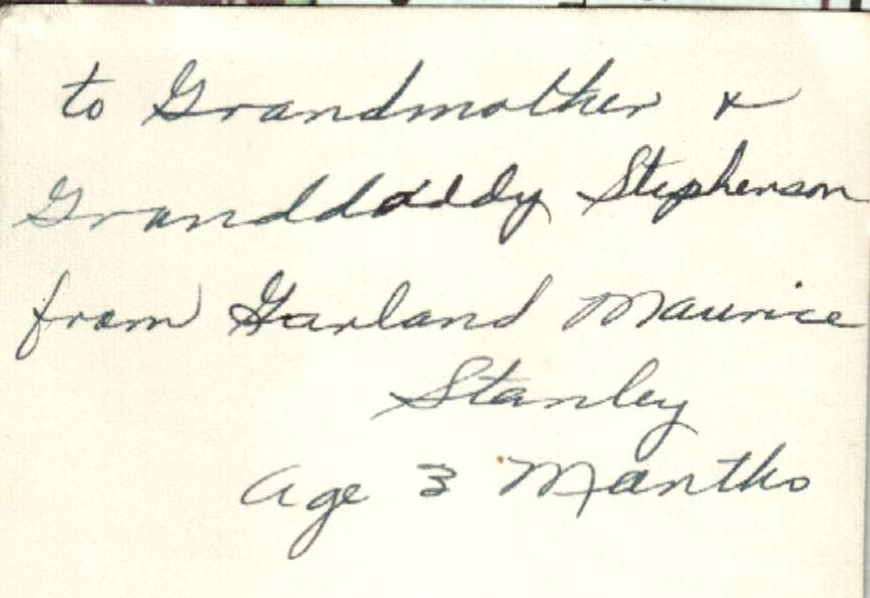 to Grandmother &
Granddaddy Stephenson
from Garland Maurice
Stanley
Age 3 Months